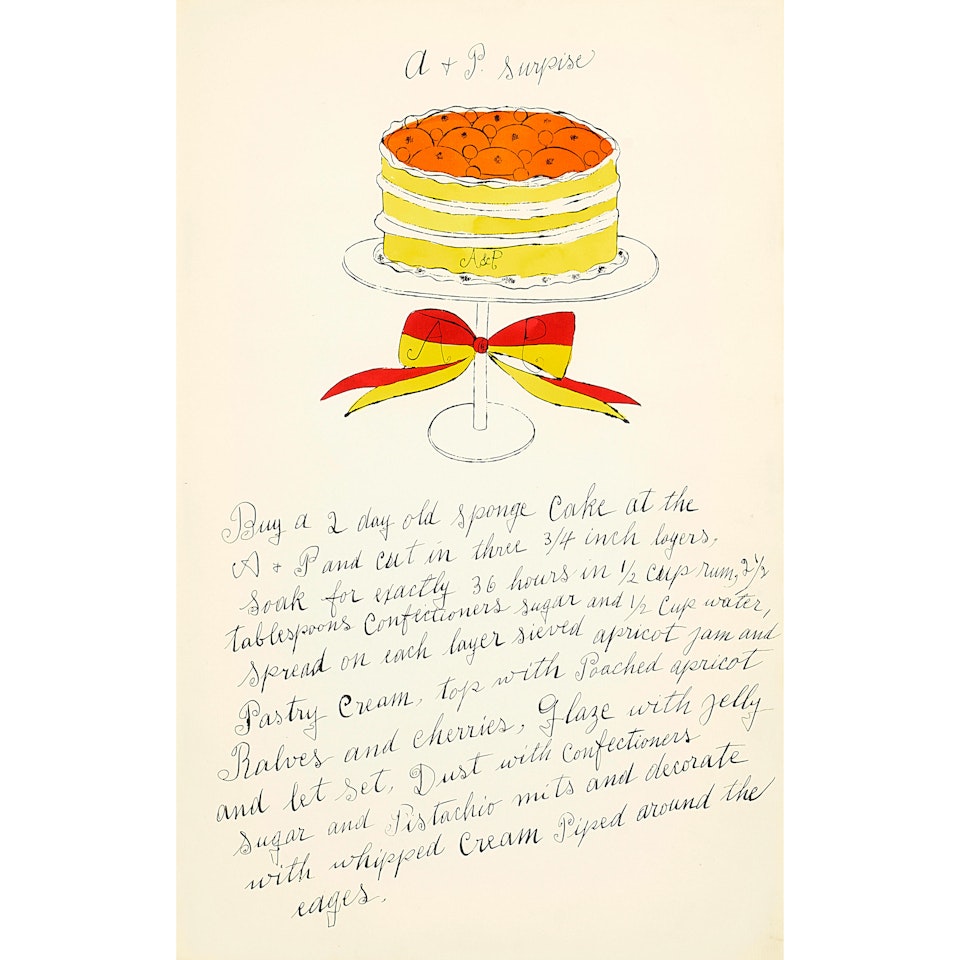 A + P. surpise
A & P
A P
Buy a 2 day old sponge Cake at the
A + P and cut in three 3/4 inch layers,
soak for exactly 36 hours in 1/2 cup rum, 2 1/2
tablespoons Confectioners sugar and 1/2 Cup water,
spread on each layer sieved apricot jam and
Pastry Cream, top with Poached apricot
Ralves and cherries, Glaze with jelly
and let set, Dust with Confectioners
sugar and Pistachio mits and decorate
with whipped Cream Piped around the
eages.